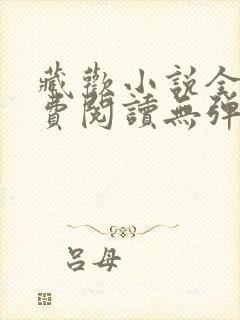 藏歡小說全
費閱讀無彈
呂母